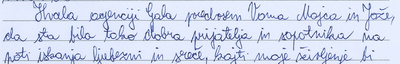 Hvala agenciji Gala predvsem Vama Mojca in Jože,
da sta bila tako dobra prijatelja in sopotnika na
poti iskanja ljubezni in sreče, kajti moje življenje bi